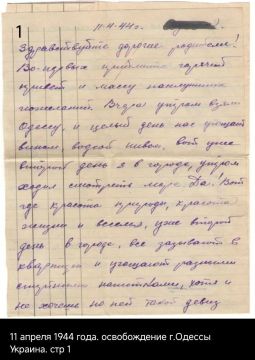 1
11-4-44г.
Здравствуйте дорогие родители!
Во-первых примите горячий
привет и массу наилучших
пожеланий. Вчера утром взяли
Одессу, и целый день нас угощают
вином, водкой пивом, вот уже
второй день я в городе, утром
ходил смотреть море. Да! Вот
где красота природы, красота
жизни и веселья, уже второй
день в городе, все зазывают в
квартиру и угощают разными
спиртными напитками, хотя и
не хочешь но пей такой девиз
11 апреля 1944 года. освобождение г.Одессы
Украина. стр 1